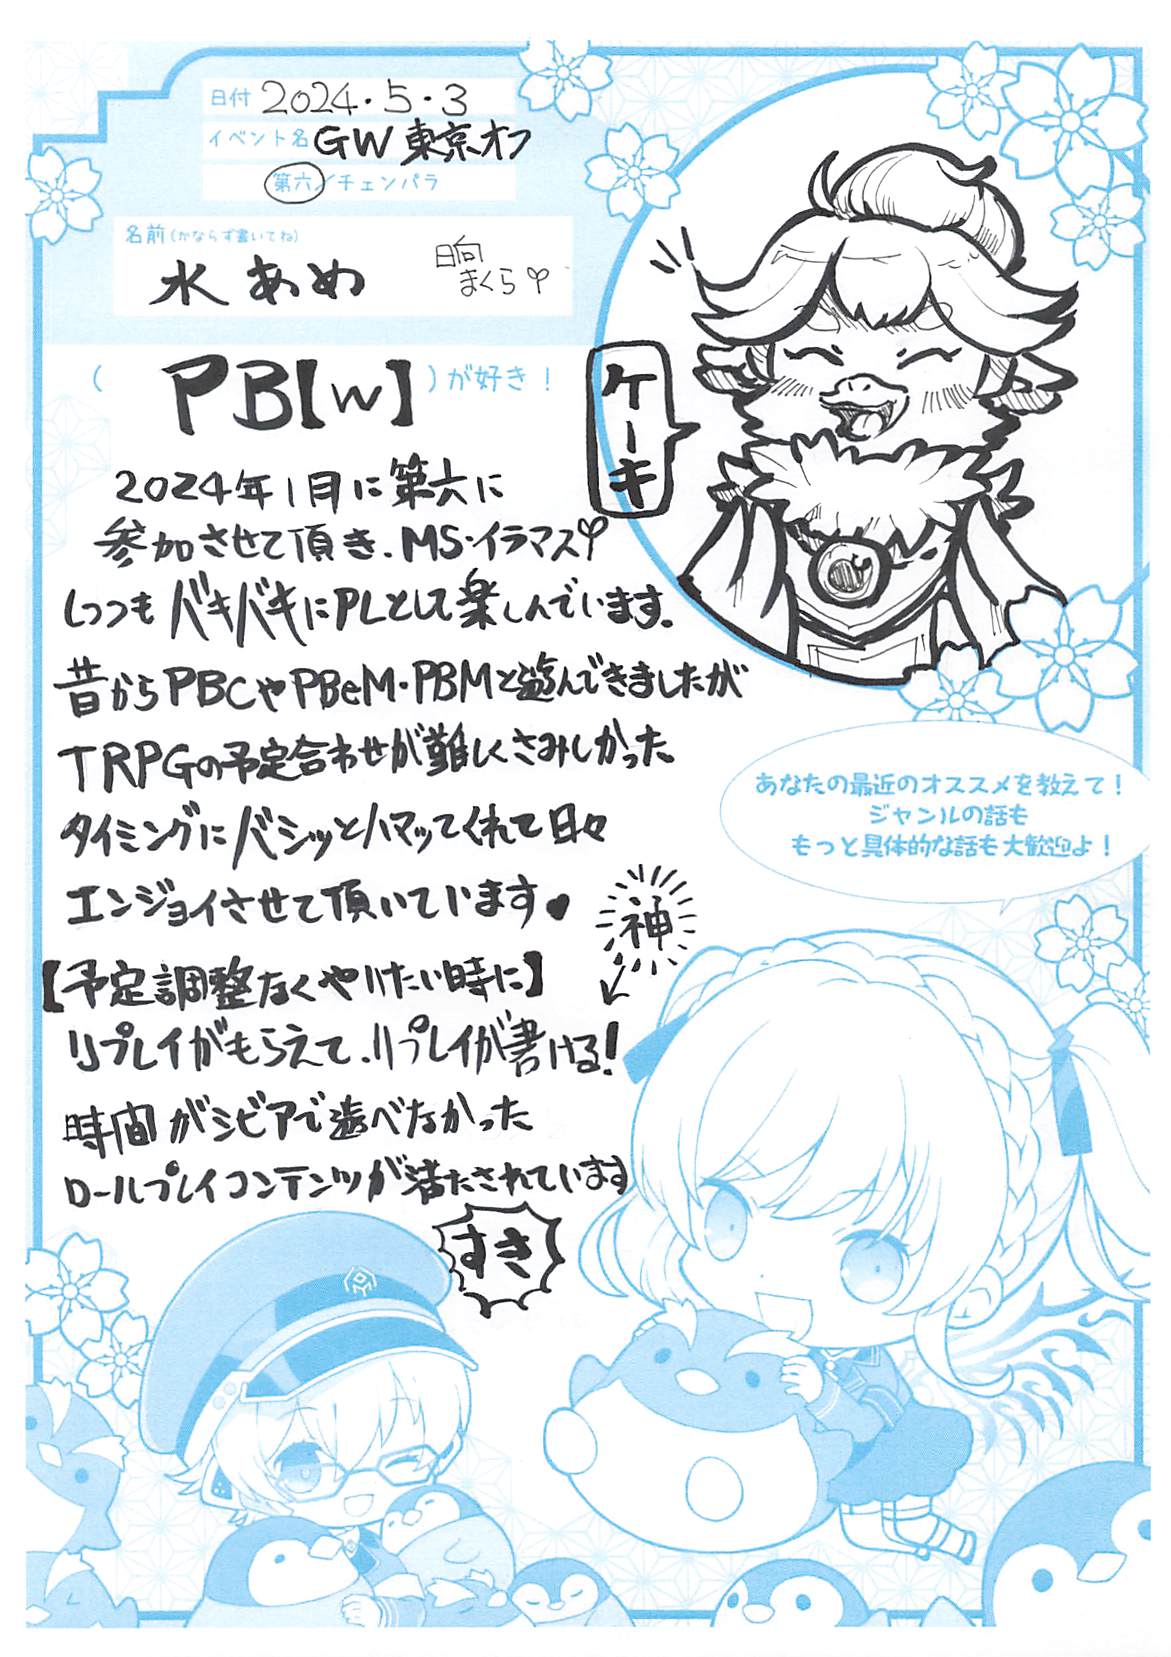 日付 2024.5.3
イベント名 GW東京オフ
第六/チェンパラ
名前(かならず書いてね)
水あめ
日向
まくら
(PB【w】)が好き!
ケーキ
2024年1月に第六に
参加させて頂き、MS・イラマス
しつつもバキバキにPLとして楽しんでいます。
昔からPBCやPBeM・PBMと遊んできましたが
TRPGの予定合わせが難しくさみしかった
タイミングにバシッとハマッてくれて日々
エンジョイさせて頂いています♥
神
【予定調整なくやりたい時に】
リプレイがもらえて、リプレイが書ける!
時間がシビアで遊べなかった
ロールプレイコンテンツが満たされています
すき
あなたの最近のオススメを教えて!
ジャンルの話も
もっと具体的な話も大歓迎よ!